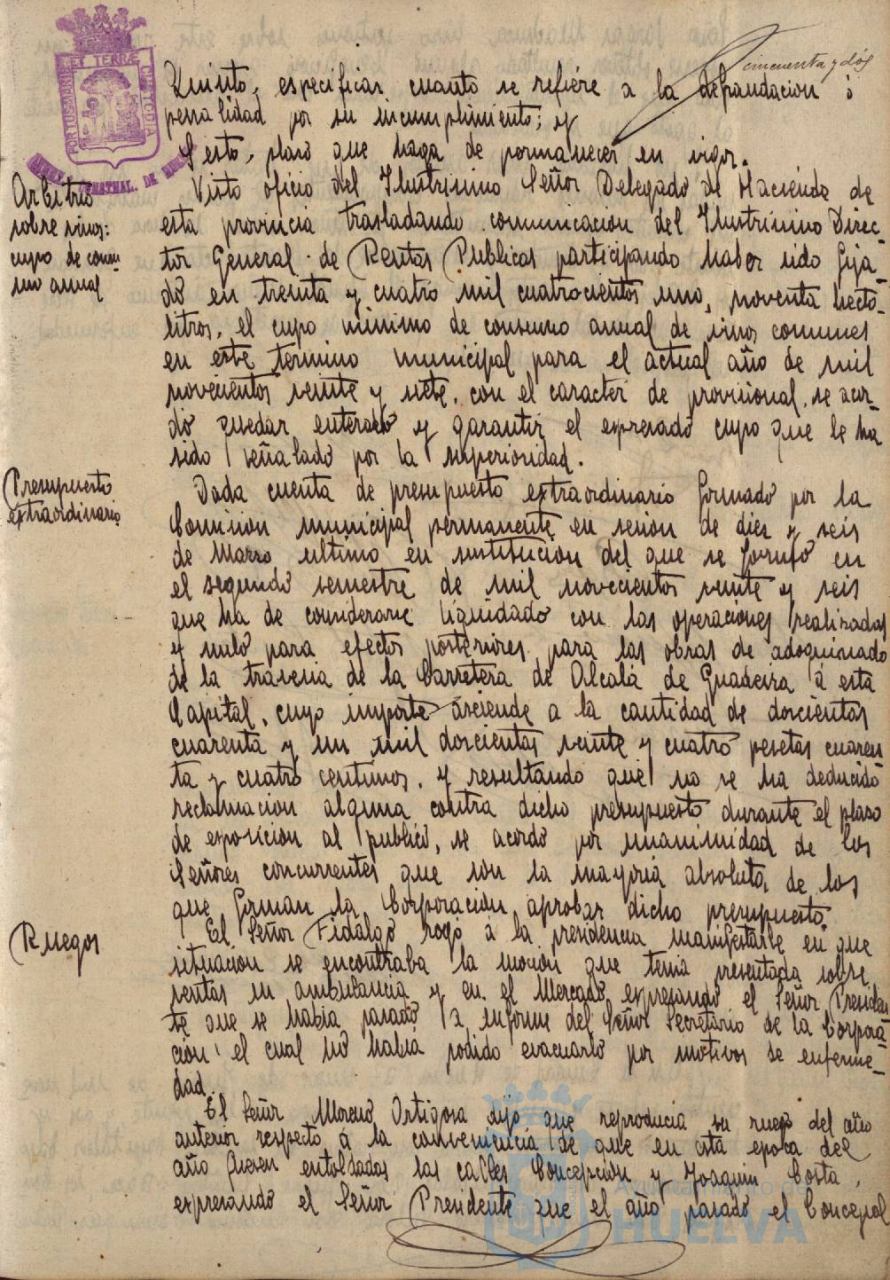 cincuenta y dós
Quinto, especificar cuanto se refiere a la defraudacion ó
penalidad por su incumplimiento; y
Sesto, plazo que haga de permanecer en vigor.
PORTUS MARIS ET TERRAE CUSTODIA
Arbitrio
sobre vinos:
cupo de consu-
mo anual
Visto oficio del Ilustrisimo Señor Delegado de Hacienda de
esta provincia trasladando comunicacion del Ilustrisimo Direc-
tor General de Rentas Publicas participando haber sido fija-
do en treinta y cuatro mil cuatrocientos uno, noventa hecto-
litros, el cupo minimo de consumo anual de vinos comunes
en este termino municipal para el actual año de mil
novecientos veinte y siete, con el caracter de provisional, se acor-
dó quedar enterado y garantir el expresado cupo que le ha
sido señalado por la superioridad.
Presupuesto
extraordinario
Dada cuenta de presupuesto extraordinario formado por la
Comision municipal permanente en sesion de diez y seis
de Marzo ultimo en sustitucion del que se formó en
el segundo semestre de mil novecientos veinte y seis
que ha de considerarse liquidado con las operaciones realizadas
y nulo para efectos posteriores, para las obras de adoquinado
de la travesia de la Carretera de Alcalá de Guadaira á esta
Capital, cuyo importe asciende a la cantidad de doscientas
cuarenta y un mil doscientas veinte y cuatro pesetas cuaren-
ta y cuatro centimos, y resultando que no se ha deducido
reclamacion alguna contra dicho presupuesto durante el plazo
de exposicion al publico, se acordó por unanimidad de los
Señores concurrentes que son la mayoria absoluta de los
que forman la Corporación aprobar dicho presupuesto.
Ruegos
El Señor Fidalgo rogó a la presidencia manifestarle en que
situacion se encontraba la moción que tenia presentada sobre
ventas en ambulancia y en el Mercado expresando el Señor Presiden-
te que se habia pasado a informe del Señor Secretario de la Corpora-
ción el cual no habia podido evacuarlo por motivos de enferme-
dad.
El Señor Moreno Ortigosa dijo que reproducia su ruego del año
anterior respecto á la conveniencia de que en esta epoca del
año fuesen entoldadas las calles Concepción y Joaquin Costa,
expresando el Señor Presidente que el año pasado el Concejal
HUELVA